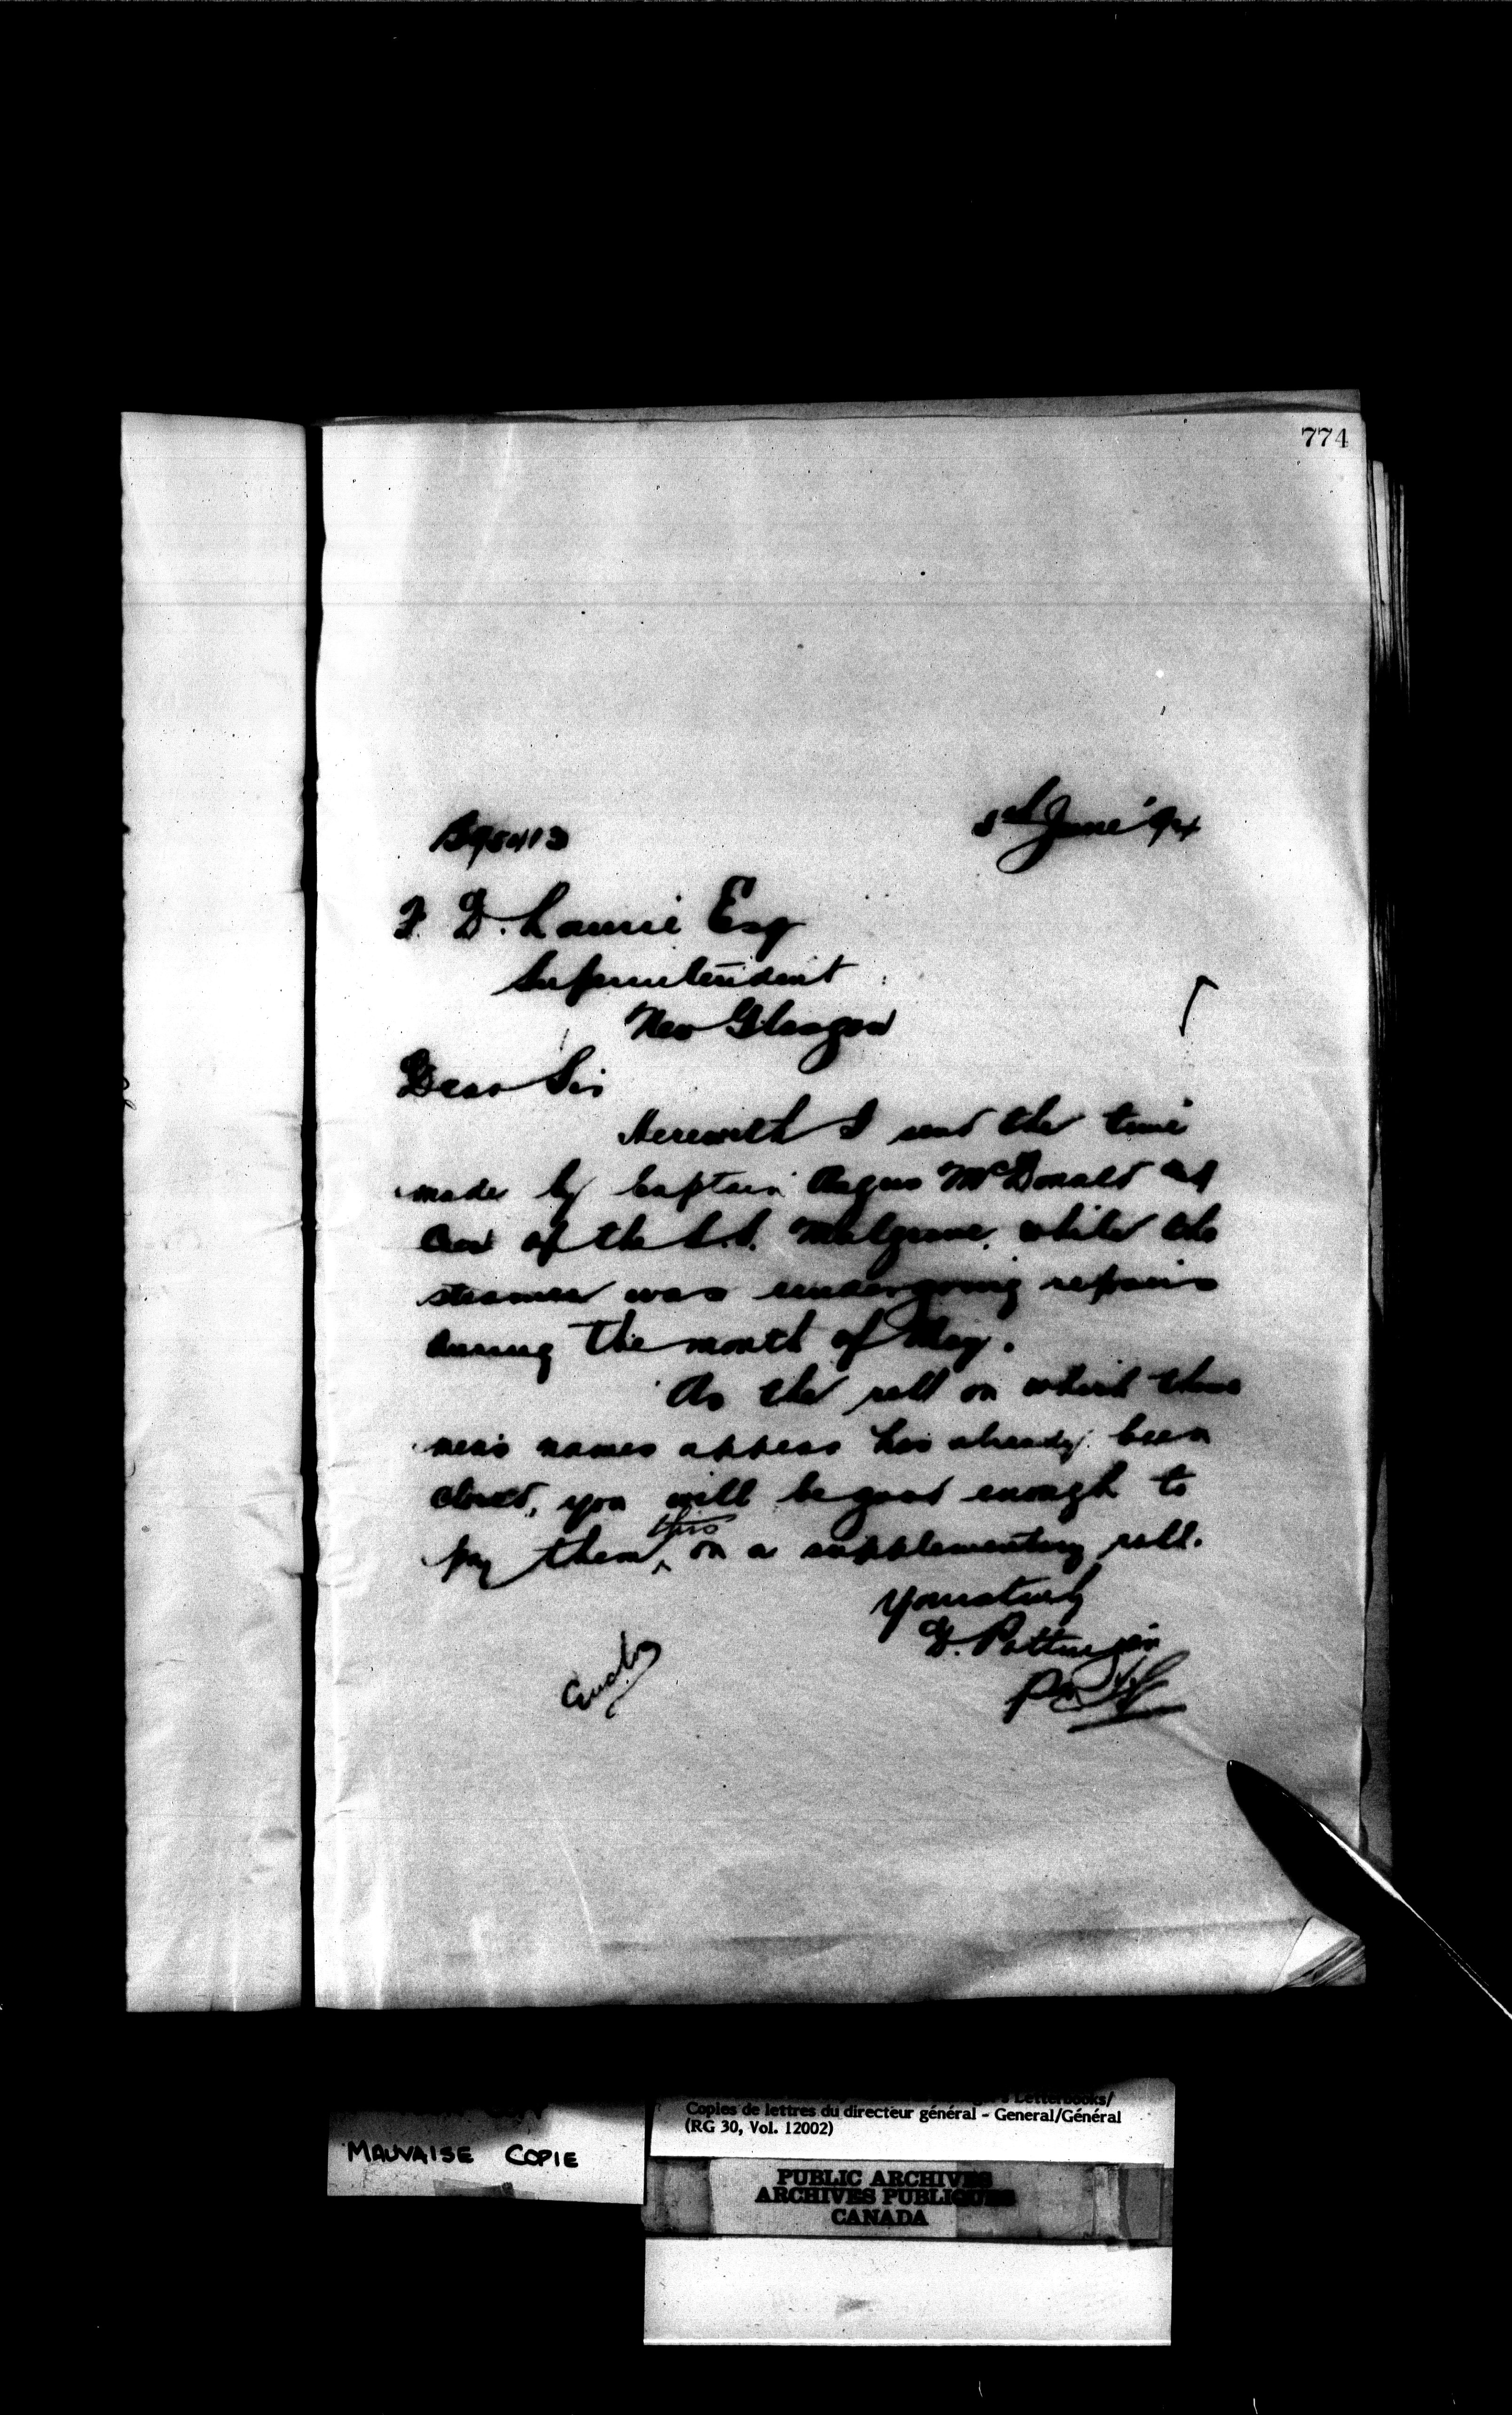 774
June '94
D. Laurie Esq
Superintendent
New Glasgow
Dear Sir
Herewith I send the time
made by Captain Angus McDonald and
Crew of the S.S. Mulgrave, while the
steamer was undergoing repairs
during the month of May.
As the roll on which these
men's names appear has already been
closed, you will be good enough to
this
pay them ^ on a supplementary roll.
Yours truly
D. Pottinger
Per
Letterbooks/
Copies de lettres du directeur général - General/Général
(RG 30, Vol. 12002)
MAUVAISE COPIE
PUBLIC ARCHIVES
ARCHIVES PUBLIQUES
CANADA